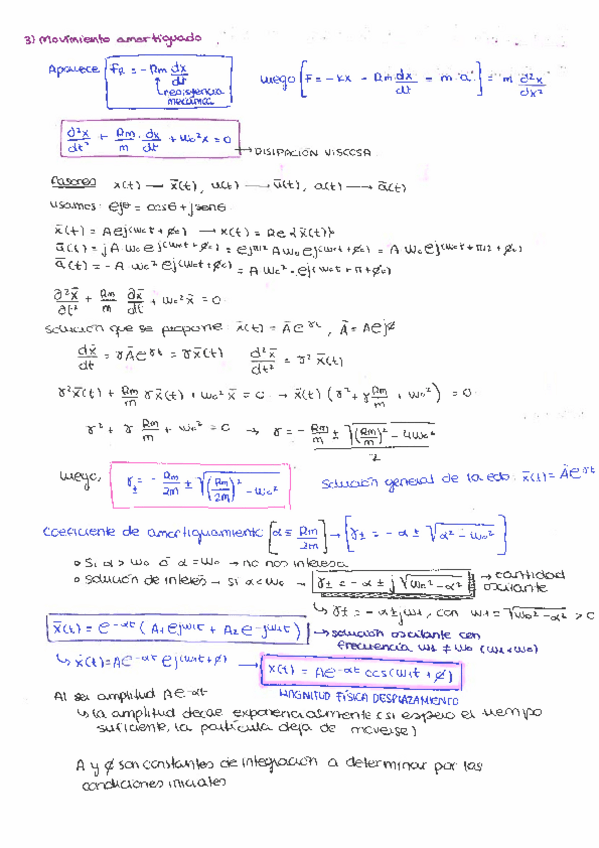 3) Movimiento amortiguado
Aparece F_R = - Rm dx/dt
↳ resistencia mecánica
luego [F = -kx - Rm dx/dt = m·a] = m d²x/dx²
d²x/dt² + Rm/m · dx/dt + ω₀²x = 0
→ DISIPACIÓN VISCOSA
Fasores x(t) → x̄(t), u(t) → ū(t), a(t) → ā(t)
usamos: e^jθ = cosθ + jsenθ
x̄(t) = A e^j(ω₀t + φ₀) → x(t) = Re{x̄(t)}
ū(t) = jA·ω₀ e^j(ω₀t + φ₀) = e^jπ/2 Aω₀ e^j(ω₀t + φ₀) = A·ω₀ e^j(ω₀t + π/2 + φ₀)
ā(t) = -A·ω₀² e^j(ω₀t + φ₀) = Aω₀²·e^j(ω₀t + π + φ₀)
∂²x̄/∂t² + Rm/m ∂x̄/dt + ω₀²x̄ = 0
Solución que se propone: x̄(t) = Ā e^γt, Ā = A e^jφ
dx̄/dt = γĀe^γt = γx̄(t) d²x̄/dt² = γ² x̄(t)
γ²x̄(t) + Rm/m γx̄(t) + ω₀² x̄ = 0 → x̄(t) (γ² + γ Rm/m + ω₀²) = 0
γ² + γ Rm/m + ω₀² = 0 → γ = (- Rm/m ± √((Rm/m)² - 4ω₀²))/2
luego, γ± = - Rm/2m ± √((Rm/2m)² - ω₀²) solución general de la edo: x̄(t) = Āe^γt
Coeficiente de amortiguamiento [α ≡ Rm/2m] → [γ± = -α ± √(α² - ω₀²)]
• Si α > ω₀ ó α = ω₀ → no nos interesa
• solución de interés → si α < ω₀ → γ± = -α ± j√(ω₀² - α²) → cantidad oscilante
↳ γ± = -α ± jω₁, con ω₁ = √(ω₀² - α²) > 0
x̄(t) = e^-αt (A₁e^jω₁t + A₂e^-jω₁t) → solución oscilante con frecuencia ω₁ ≠ ω₀ (ω₁ < ω₀)
↳ x̄(t) = Ae^-αt e^j(ω₁t + φ) → x(t) = Ae^-αt cos(ω₁t + φ)
MAGNITUD FÍSICA DESPLAZAMIENTO
Al ser amplitud Ae^-αt
↳ la amplitud decae exponencialmente (si espero el tiempo
suficiente, la partícula deja de moverse)
A y φ son constantes de integración a determinar por las
condiciones iniciales